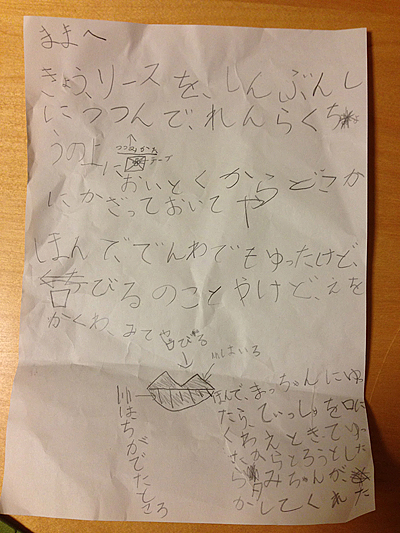 ままへ
きょう、リースを、しんぶんし
につつんで、れんらくちょ
うの上に
つつみかた
テープ
おいとくからどこか
にかざっておいてや
ほんで、でんわでもゆったけど、
くちびるのことやけど、えを
かくわ、みてや
くちびる
はいいろ
ちがでたところ
ほんで、まっちゃんにゆっ
たら、てぃっしゅを口に
くわえとき、てゆった